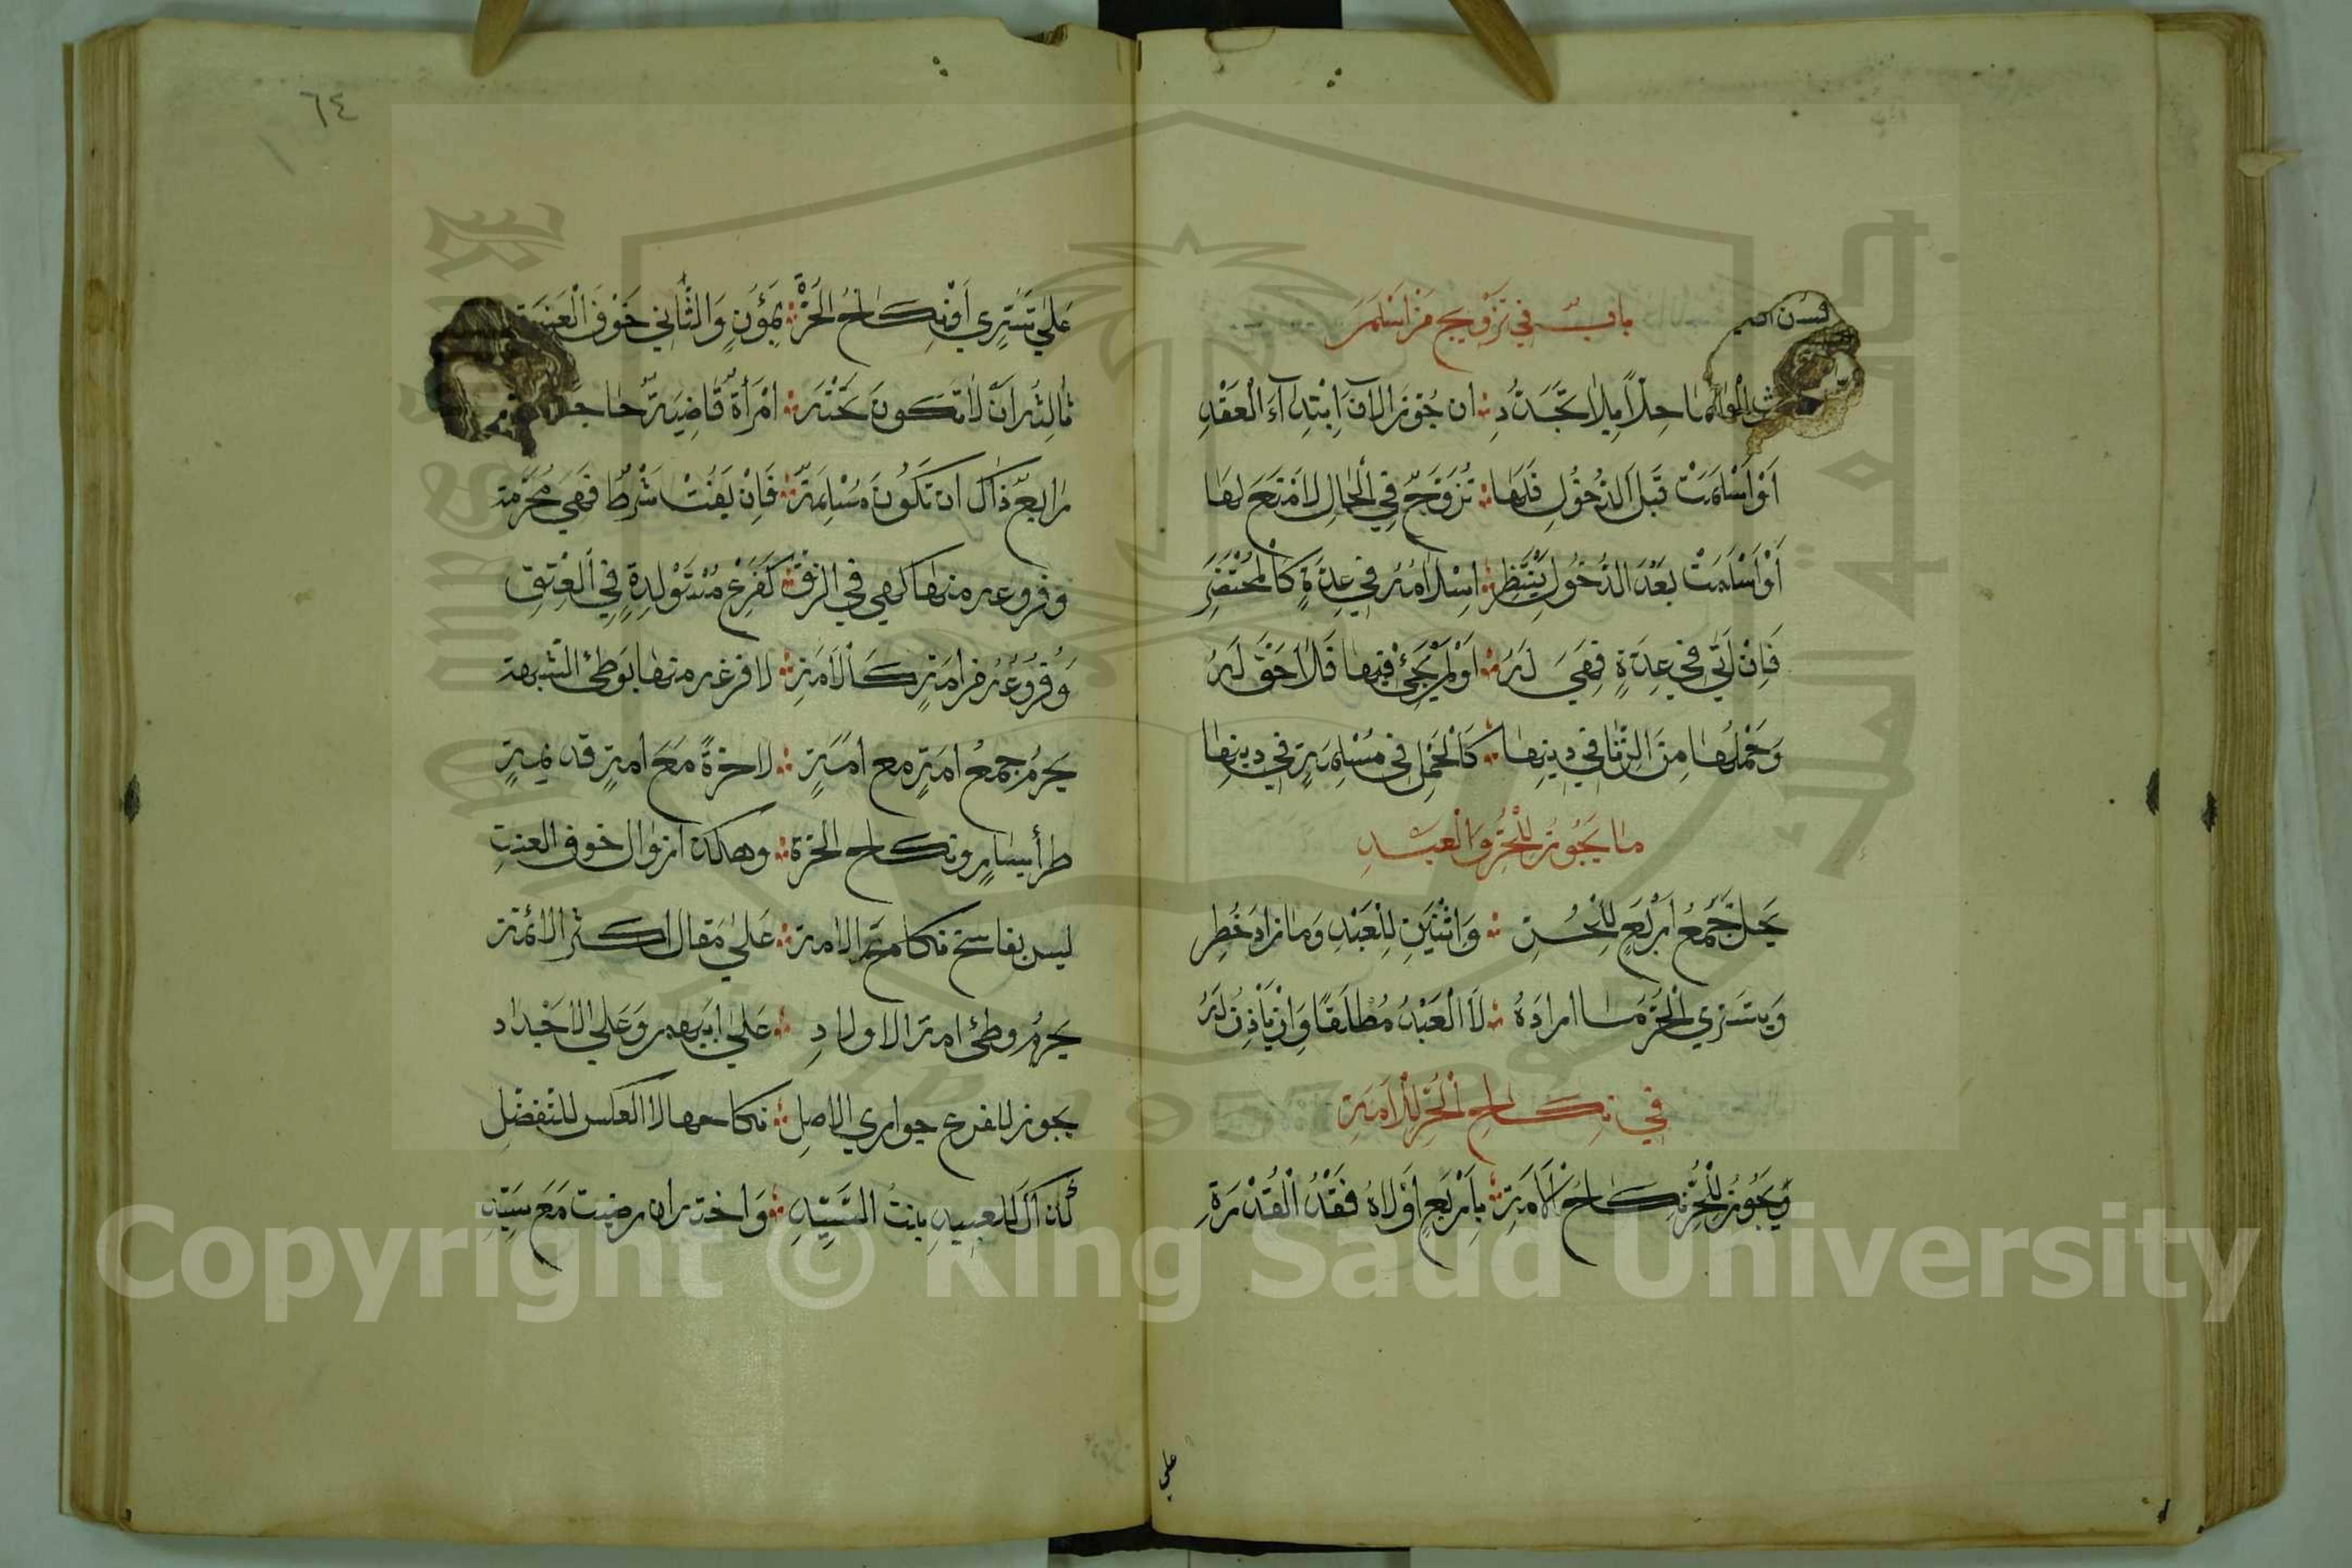 باب في تزويج من اسلمر
حلاً بلا تجدد ان جوز الآن ابتدآء العقد
أو أسلمت قبل الدخول فلها تزوج في الحال لا منع لها
أو أسلمت بعد الدخول ينتظر اسلامه في عدة كالمحتضر
فإن أتى في عدة فهي له أو لم يجئ فيها فلا حق له
وحملها من الزنا في دينها كالحمل في مسلمة في دينها
ما يجوز للحر والعبد
يحل جمع أربع للحر واثنين للعبد وما زاد خطر
ويتسري الحر ما اراده لا العبد مطلقا وان يأذن له
في نكاح الحر للأمة
ويجوز للحر نكاح الأمة بأربع أولاه فقد القدرة
على
٦٤
على تسري أو نكاح الحرة بمؤن والثاني خوف العنت
ثالثه أن لا تكون تحته امرأة قاضية
رابع ذاك ان تكون مسلمة فإن يفت شرط فهي محرمة
وفروعه منها كهي في الرق كفرع مستولدة في العتق
وفروعه من امة كالأمة لا فرعه منها بوطئ الشبهة
يحرم جمع امة مع امة لا حرة مع امة قديمة
طرأ يسار ونكاح الحرة وهكذا زوال خوف العنت
ليس بفاسخ نكاح الامة على مقال اكثر الائمة
يحرم وطئ امة الاولاد على ابيهم وعلى الاجداد
يجوز للفرع جواري الاصل نكاحها لا العكس للتفضل
كذاك للعبيد بنت السيد واخته ان رضيت مع سيد
Copyright © King Saud University